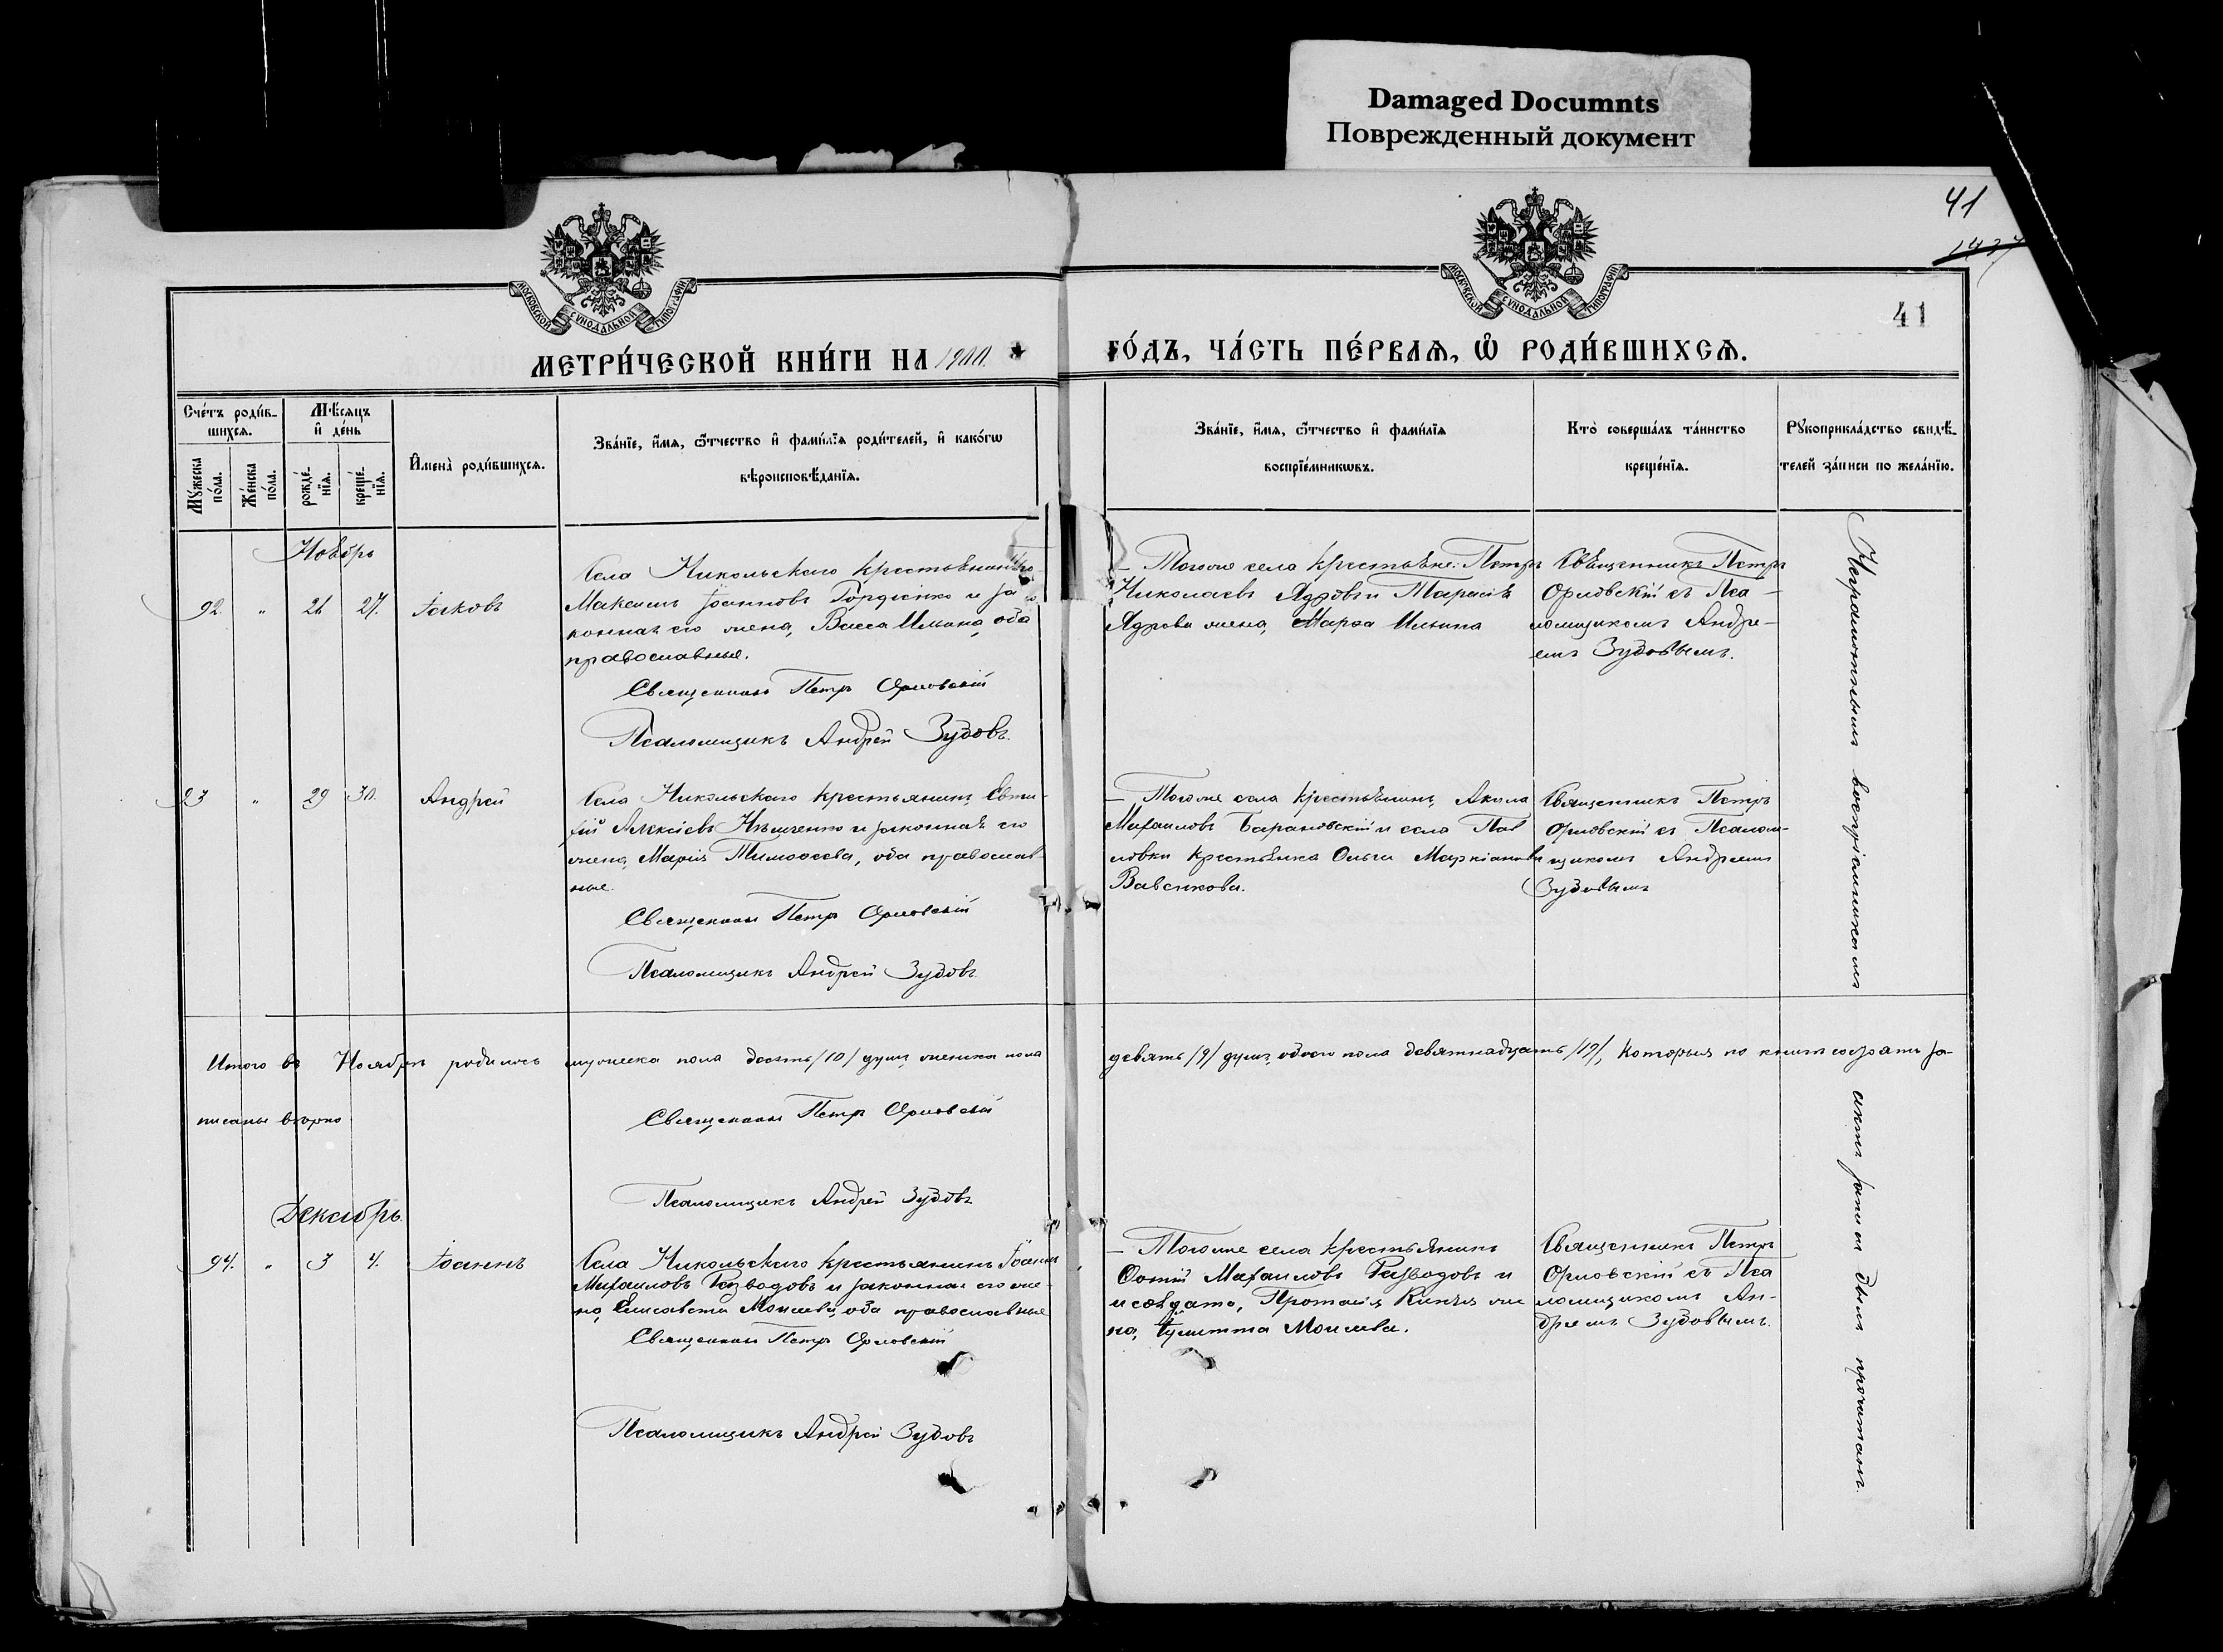 Damaged Documnts
Поврежденный документ
41
41
МОСКОВСКОЙ СѴНОДАЛЬНОЙ ТИПОГРАФІИ
МОСКОВСКОЙ СѴНОДАЛЬНОЙ ТИПОГРАФІИ
МЕТРИ́ЧЕСКОЙ КНИ́ГИ НА 1900
ГО́ДЪ, ЧА́СТЬ ПЕ́РВАѦ, Ѽ РОДИ́ВШИХСѦ.
Сче́тъ роди́в-
шихсѧ.
Мꙋ́жеска по́ла.
Же́нска по́ла.
Мѣ́сѧцъ
и҆ де́нь
рожде́-
нїѧ.
креще́-
нїѧ.
И҆мена̀ роди́вшихсѧ.
Зва́нїе, и҆́мѧ, ѻ҆́тчество и҆ фами́лїѧ роди́телей, и҆ како́гѡ
вѣроисповѣ́данїѧ.
Зва́нїе, и҆́мѧ, ѻ҆́тчество и҆ фами́лїѧ
воспрїе́мникѡвъ.
Кто̀ соверша́лъ та́инство
креще́нїѧ.
Рꙋкоприкла́дство свидѣ́-
телей за́писи по жела́нїю.
Ноябрь
92. " 21 27. Іаковъ
Села Никольскаго крестьянинъ
Максимъ Іоанновъ Гордіенко и за
конная его жена, Васса Ильина, оба
православные.
Священникъ Петръ Орловскій
Псаломщикъ Андрей Зудовъ.
— Тогоже села крестьяне: Петръ
Николаевъ Ядровъ и Тарасія
Ядрова жена, Марѳа Ильина
Священникъ Петръ
Орловскій съ Пса-
ломщикомъ Андре-
емъ Зудовымъ.
93 " 29 30. Андрей
Села Никольскаго крестьянинъ Евти-
хій Алексіевъ Ильченко и законная его
жена, Марія Тимоѳеева, оба православ-
ные.
Священникъ Петръ Орловскій
Псаломщикъ Андрей Зудовъ.
— Тогоже села крестьянинъ Акила
Михаиловъ Барановскій и села Пав
ловки крестьянка Ольга Маркіанова
Вавенкова.
Священникъ Петръ
Орловскій съ Псалом-
щикомъ Андреемъ
Зудовымъ
Неграмотнымъ воспріемникамъ
Итого въ Ноябрѣ родилось мужеска пола десять /10/ душъ, женска пола
девять /9/ душъ, обоего пола девятнадцать /19/, которыя по книгѣ за-
писаны вѣрно
Священникъ Петръ Орловскій
Псаломщикъ Андрей Зудовъ
Декабрь.
94. " 3 4. Іоаннъ
Села Никольскаго крестьянинъ Іоаннъ
Михаиловъ Разводовъ и законная его же-
на, Елисавета Моисеева, оба православные
Священникъ Петръ Орловскій
Псаломщикъ Андрей Зудовъ
— Тогоже села крестьянинъ
Фотій Михаиловъ Разводовъ и
жe
на, Іулитта Моисеева.
Священникъ Петръ
Орловскій съ Пса
ломщикомъ Ан-
дреемъ Зудовымъ.
актъ записи былъ прочитанъ.